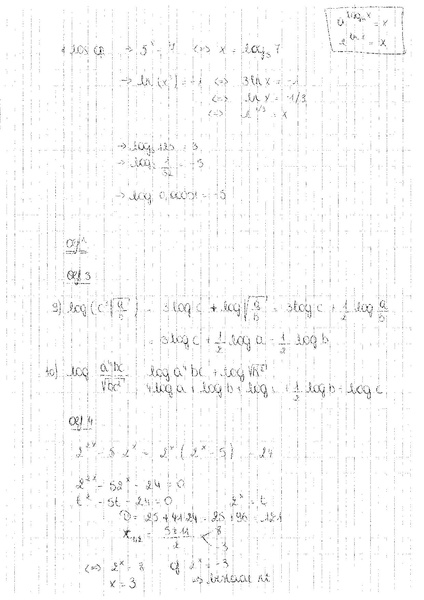 a^{log_a x} = x
e^{ln x} = x
→ 5^x = 7 ⇔ x = log_5 7
→ ln (x³) = -1 ⇔ 3 ln x = -1
⇔ ln x = -1/3
⇔ = x
→ log_5 125 = 3
→ log_2 1/32 = -5
→ log 0,00001 = -5
Oef 3
9) log (c³ √(a/b)) = 3 log c + log √(a/b) = 3 log c + 1/2 log a/b
= 3 log c + 1/2 log a - 1/2 log b
10) log a⁴bc log a⁴bc + log
4 log a + log b + log 1/2 log b - log c
Oef 4
2^{2x} - 5 2^x = 2^x (2^x - 5) 24
2^{2x} - 5 2^x - 24 = 0
t² - 5t - 24 = 0 2^x = t
D = 25 + 4.1.24 = 25 + 96 = 121
x_{1,2} = 5 ± 11 / 2 < 8
-3
⇔ 2^x = 8 of 2^x = -3
x = 3 ⇒ bestaat